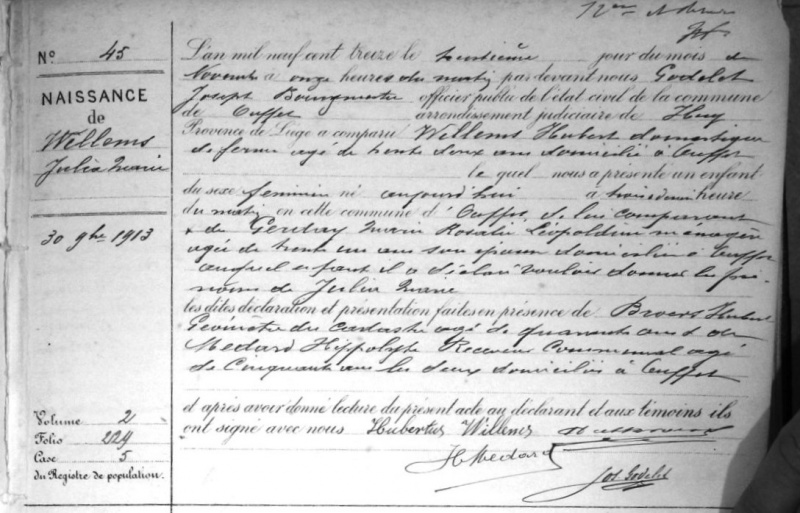 Nº 45
NAISSANCE
de
Willems
Julia Marie
30 9bre 1913
Volume 2
Folio 229
Case 5
du Registre de population.
L'an mil neuf cent treize le trentième jour du mois de
Novemb à onze heures du matin par devant nous Godelet
Joseph Bourgmestre officier public de l'état civil de la commune
de Ouffet arrondissement judiciaire de Huy
Province de Liége a comparu Willems Hubert domestique
de ferme agé de trente deux ans domicilié à Ouffet
le quel nous a présenté un enfant
du sexe feminin né aujourd'hui à trois heure
du matin en cette commune d'Ouffet, de lui comparant
& de Marie Rosalie Léopoldine ménagère
agée de trente un ans son épouse domiciliée à Ouffet
auquel enfant il a déclaré vouloir donner les pré-
noms de Julia Marie
les dites déclaration et présentation faites en présence de Broers Hubert
Géomètre du cadastre agé de quarante ans & de
Medard Hippolyte Receveur Communal agé
de Cinquante ans les deux domiciliés à Ouffet
et après avoir donné lecture du présent acte au déclarant et aux témoins ils
ont signé avec nous Hubertus Willems
H Medard
Jos Godelet